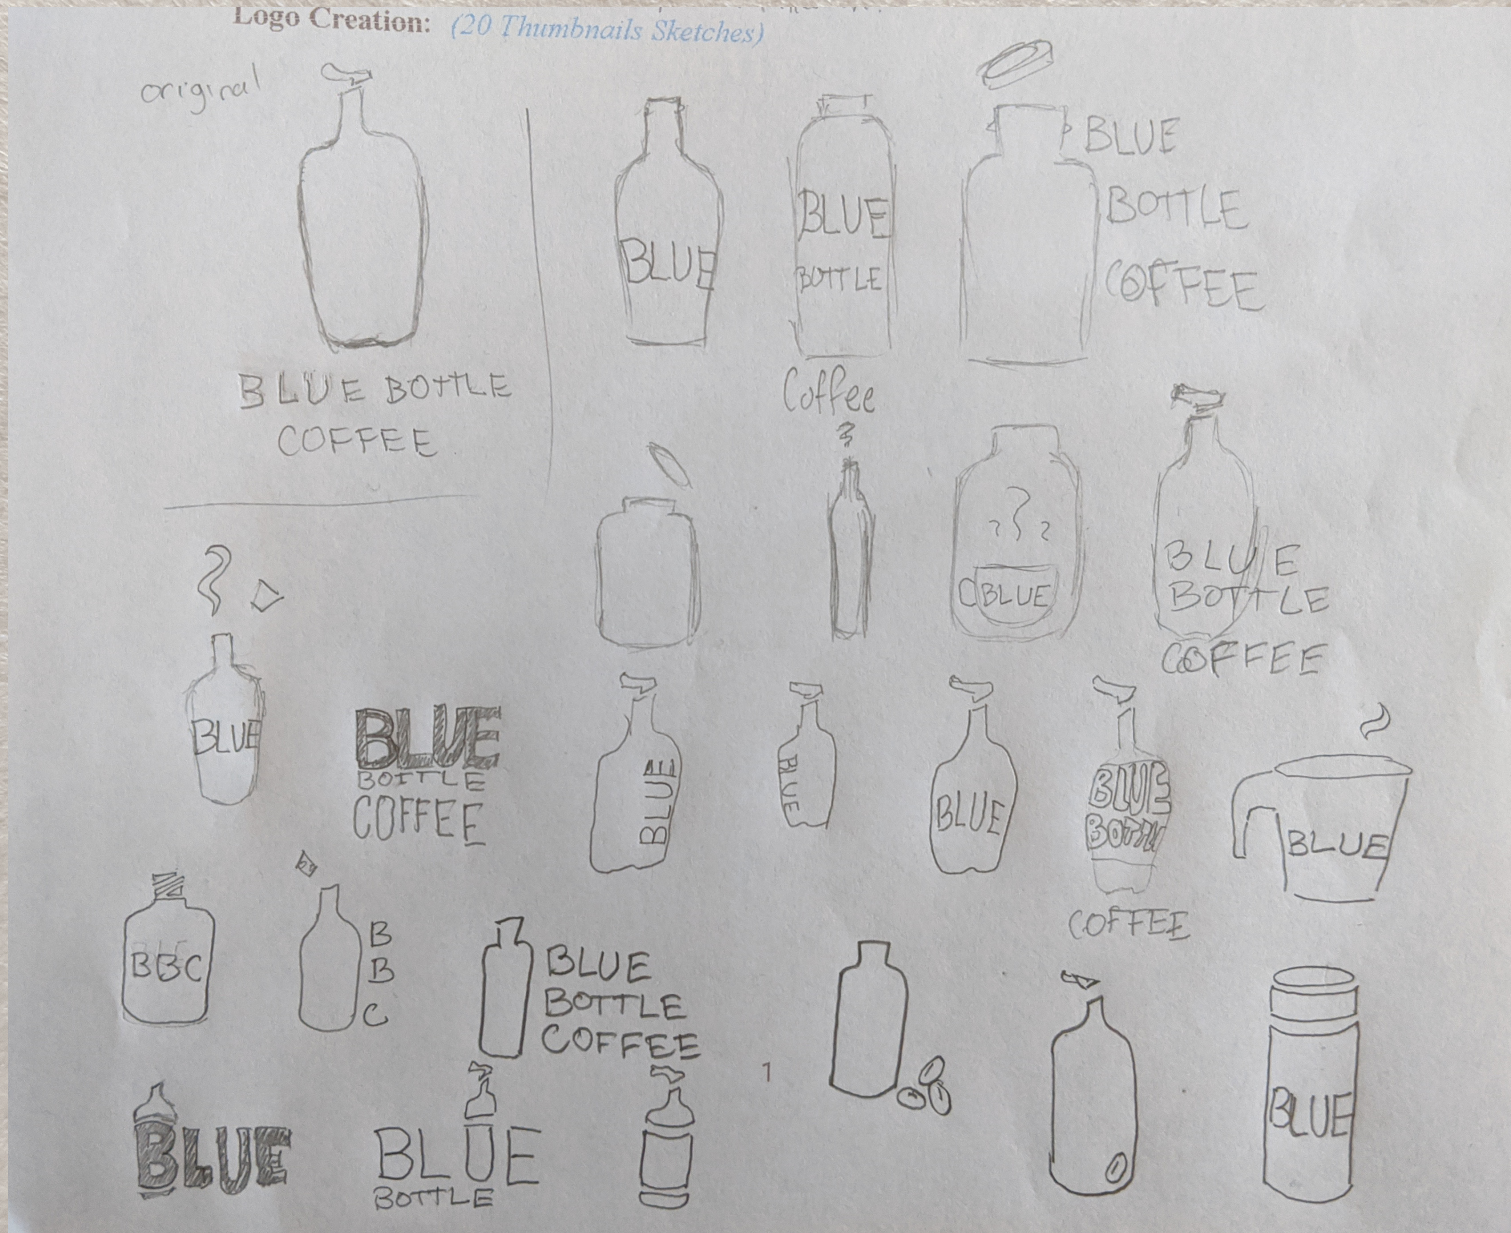 Logo Creation: (20 Thumbnails Sketches)
original
BLUE BOTTLE
COFFEE
BLUE
BLUE
BOTTLE
Coffee
BLUE
BOTTLE
COFFEE
BLUE
BLUE
BOTTLE
COFFEE
BLUE
BLUE
BOTTLE
COFFEE
BLUE
BLUE
BLUE
BLUE
BOTTLE
COFFEE
BLUE
BBC
B
B
C
BLUE
BOTTLE
COFFEE
1
BLUE
BLUE
BLUE
BOTTLE